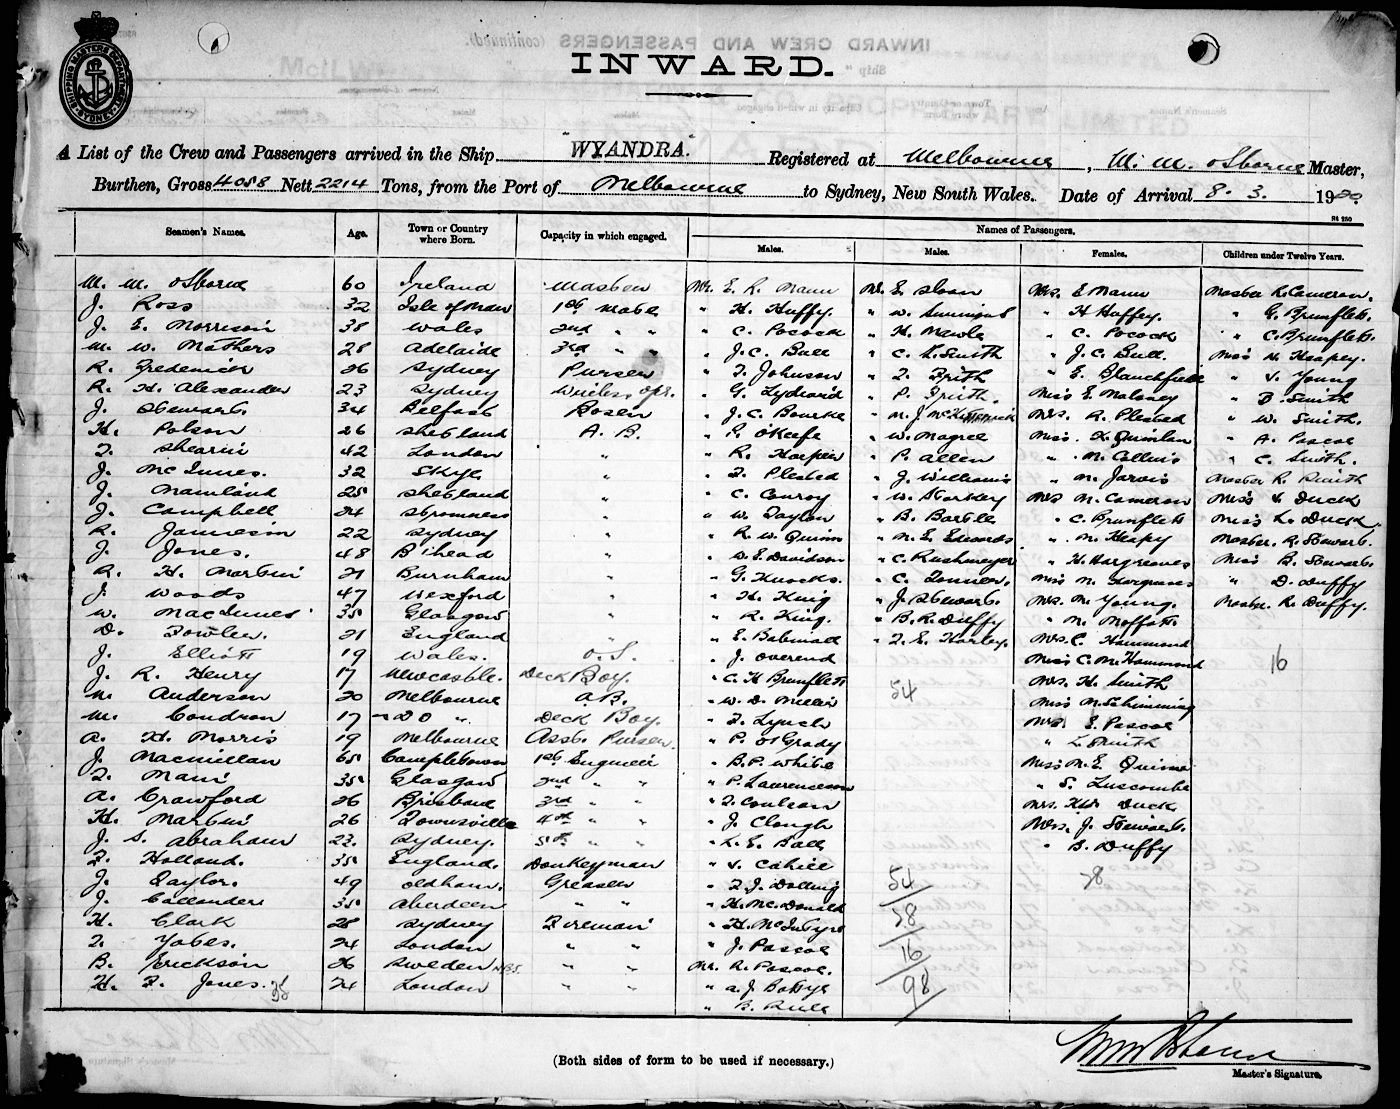 SHIPPING MASTERS DEPARTMENT SYDNEY
INWARD.
A List of the Crew and Passengers arrived in the Ship "WYANDRA." Registered at Melbourne, M. M. Osborne Master,
Burthen, Gross 4058 Nett 2214 Tons, from the Port of Melbourne to Sydney, New South Wales. Date of Arrival 8. 3. 19
Names of Passengers.
Seamen's Names. Age. Town or Country where Born. Capacity in which engaged. Males. Males. Females. Children under Twelve Years.
M. M. Osborne 60 Ireland Master Mr. E. R. Mann Mr. E. Sloan Mrs. E. Mann Master R. Cameron.
J. Ross 32 Isle of Man 1st Mate " H. Huffy " W. " H Huffey. " G. Brunflett.
J. E. Morrison 38 Wales 2nd " " " C. Pocock " H. " C. Pocock " C. Brunflett.
M. W. Mathers 28 Adelaide 3rd " " " J. C. Bull " C. R. Smith " J. C. Bull. Miss N. Heapey.
R. Frederick 26 Sydney Purser " T. Johnson " T. Frith " E. Blanchfield " V. Young
R. H. Alexander 23 Sydney Wireless Opr. " G. Lydiard " P. Frith. Miss E. Maloney " B. Smith
J. Stewart. 34 Belfast Bosen " J. C. Bourke " M. J. McKitterick Mrs. R. Plested " W. Smith.
H. Polson 26 Shetland A. B. " P. O'Keefe " W. Magee Miss. K. Quinlan " A. Pascoe
T. Shearin 42 London " " R. Harper " P. Allen " M. Collins " C. Smith.
J. McInnes. 32 Skye " " T. Plested " J. Williams " M. Jarvis Master R. Smith
J. Mainland 25 Shetland " " C. Conroy " W. Starkey Mrs M. Cameron Miss V. Duck
J. Campbell 24 Stromness " " W. Taylor " B. Bartle " C. Brunflett Miss L. Duck
R. Jamieson 22 Sydney " " R. W. Quinn " M. E. Edwards " M. Heapy Master. R. Stewart.
J. Jones. 48 B'head " " W. E. Davidson " C. Rushmeyer " H. Hargreaves Miss B. Stewart.
R. H. Martin 21 Burnham " " G. Knocks. " C. Tonner. Miss M. Hargreaves " D. Duffy
J. Woods 47 Wexford " " H. King " J. Stewart. Mrs. M. Young. Master. R. Duffy.
W. MacInnes 35 Glasgow " " R. King. " B. R. Duffy " M. Moffatt
D. Fowler. 21 England " " E. Babinall " T. E. Harley. Mrs. C. Hammond
J. Elliott 19 Wales. O. S. " J. Overend Miss C. M. Hammond 16
J. R. Henry 17 Newcastle. Deck Boy. " C. H Brunflett 54 Mrs. H. Smith
M. Anderson 20 Melbourne A.B. " W. D. Miller Miss M. Schimming
M. Condron 17 - Do " Deck Boy. " T. Lynch Mrs E. Pascoe
A. H. Morris 19 Melbourne Asst. Purser. " P. O'Grady " L. Smith
J. Macmillan 65 Campbeltown 1st Engineer " B. P. White Miss M. E. Quinn
T. Main 35 Glasgow 2nd " " P. Lawrenceson " S. Luscombe
A. Crawford 26 Brisbane 3rd " " " T. Coulson Mrs. H. W. Duck
H. Martin 26 Townsville 4th " " " J. Clough Mrs. J. Stewart.
J. S. Abraham 23. Sydney. 5th " " " L. E. Ball " B. Duffy
T. Holland. 35 England. Donkeyman " V. Cahill
J. Taylor. 49 Oldham. Greaser " T. J. Dolling 54 28
J. Callander 35 Aberdeen " " " H. McDonald
H. Clark 28 Sydney Fireman " H. McIntyre 28
T. Yates. 24 London " " " J. Pascoe
B. Erickson 26 Sweden " " Mr. R. Pascoe. 16
H. F. Jones. 35 24 London " " " A. J. Battye 98
" B. Rule
(Both sides of form to be used if necessary.)
Master's Signature.